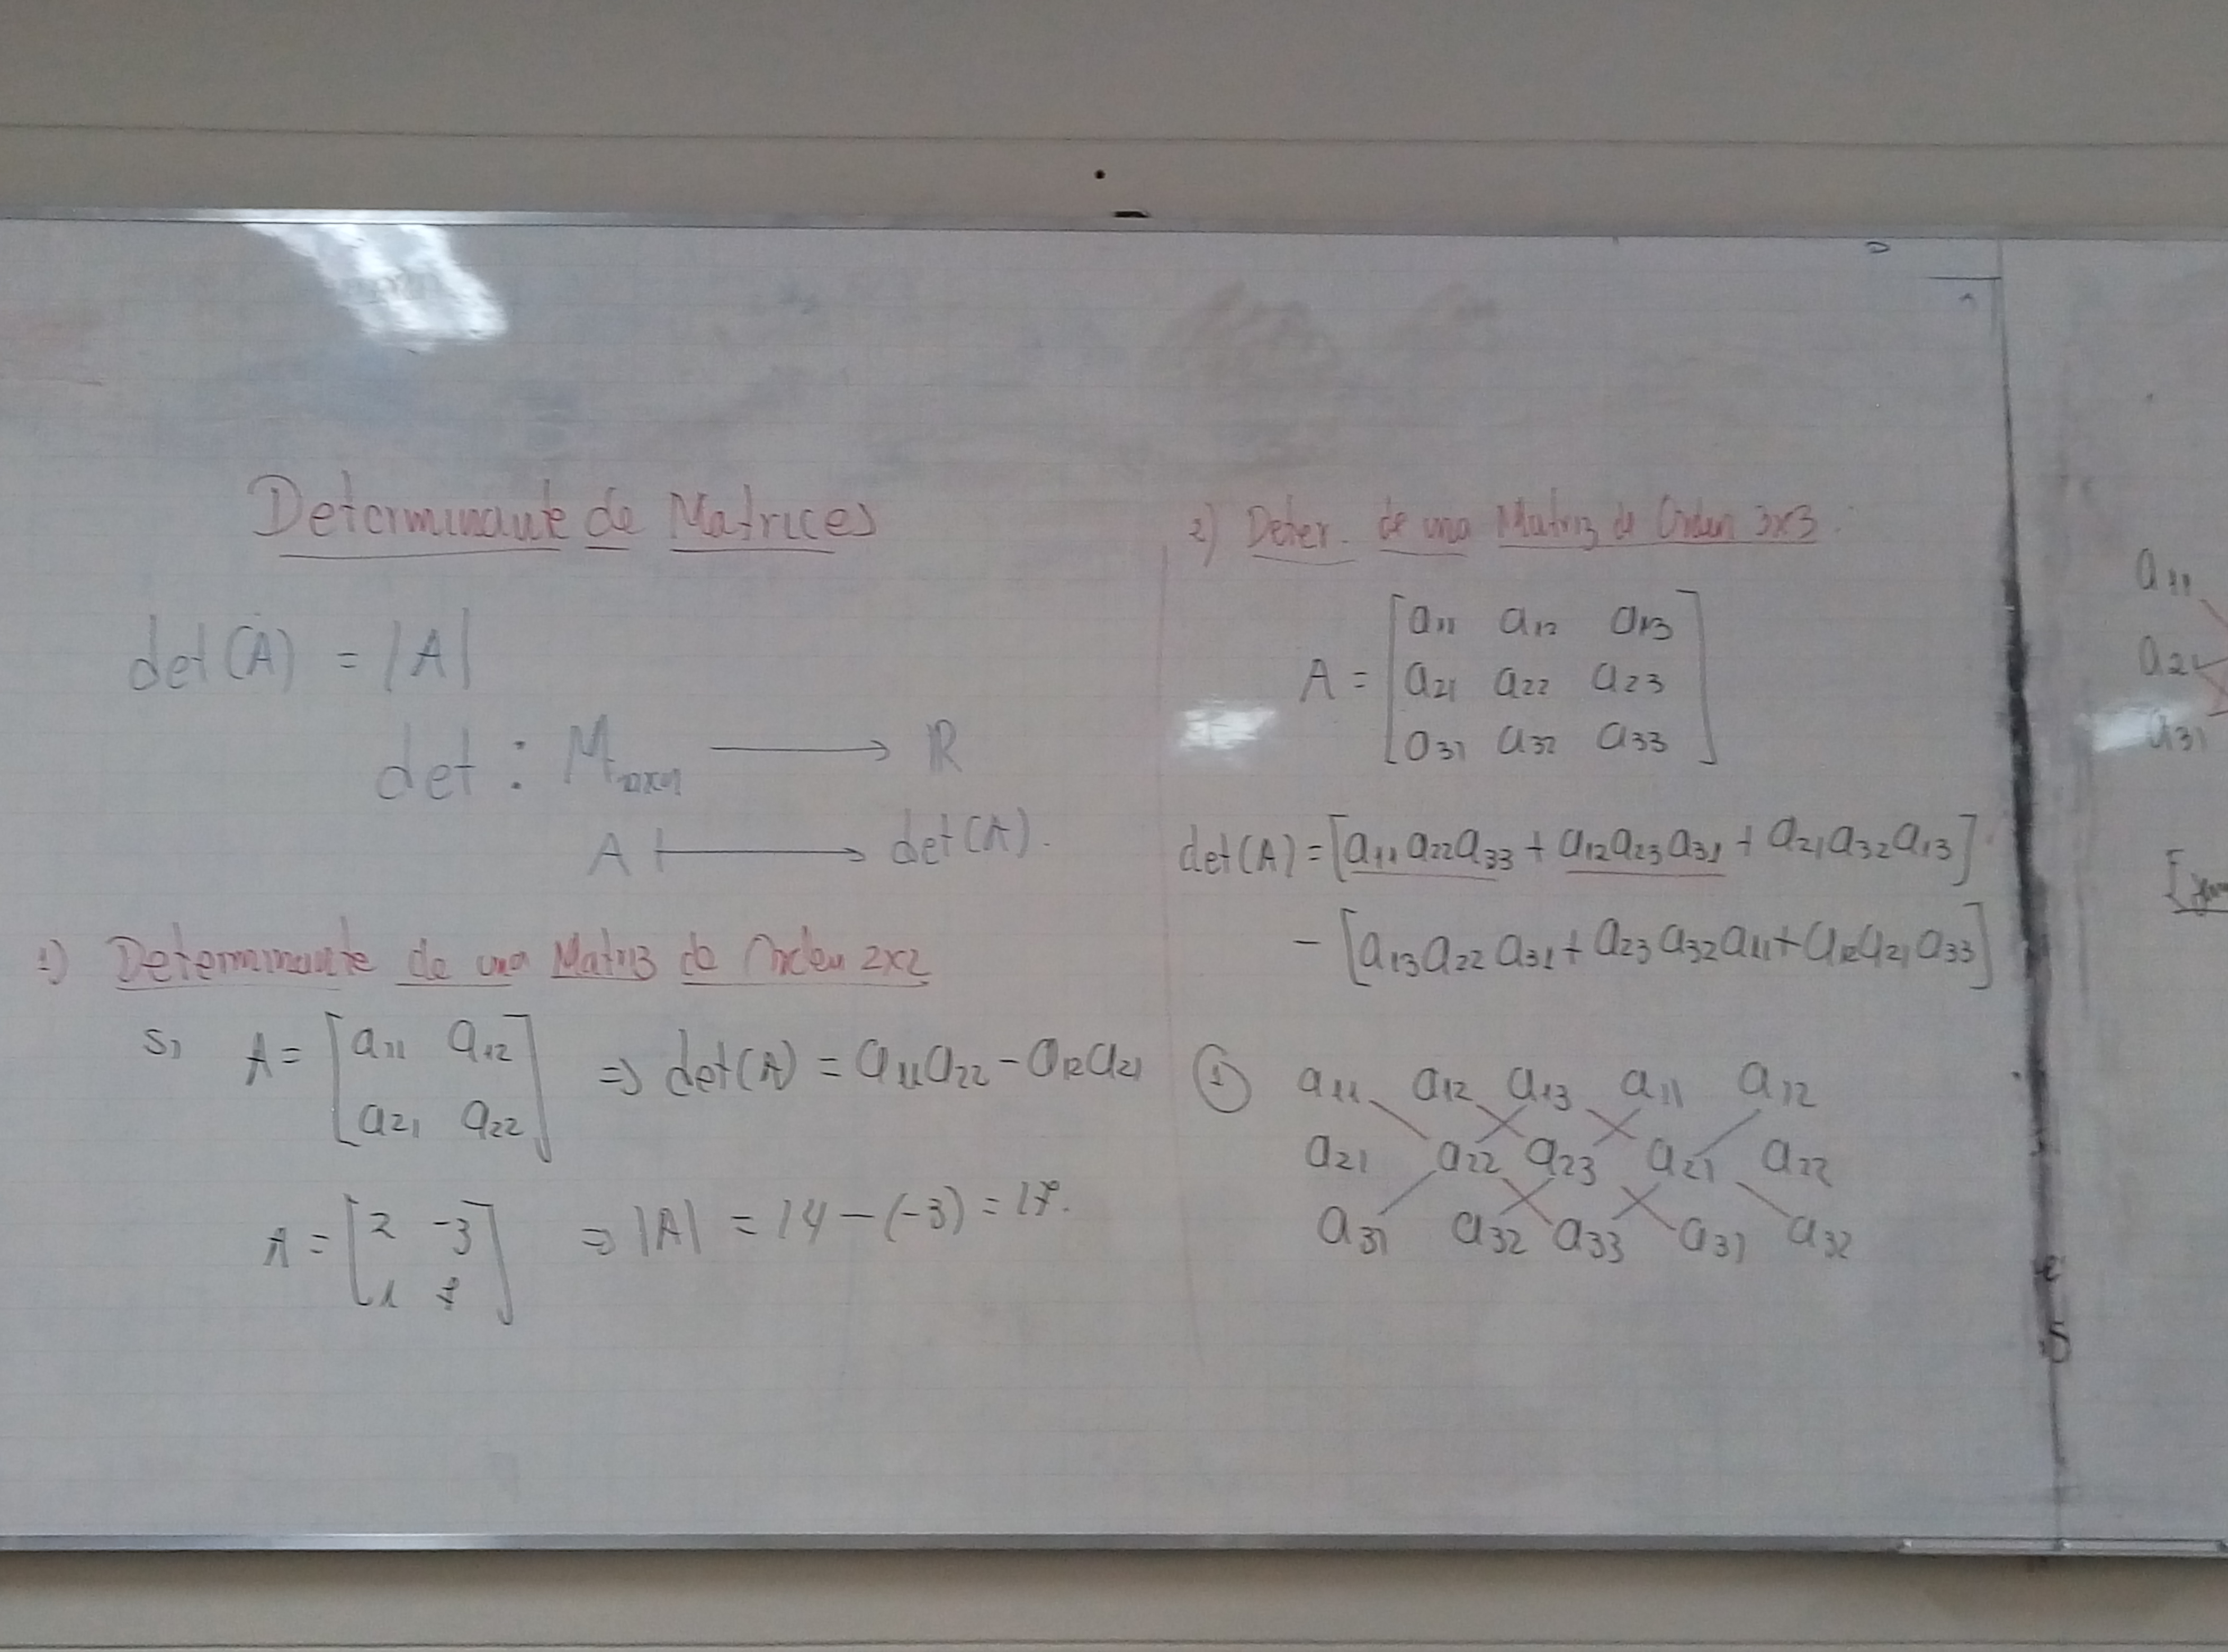 Determinante de Matrices
det(A) = |A|
det : Mnxn ⟶ ℝ
A ⟼ det(A).
1) Determinante de una Matriz de Orden 2x2
Si A = [a11 a12
a21 a22] ⇒ det(A) = a11a22 - a12a21
A = [2 -3
1 7] ⇒ |A| = 14 - (-3) = 17.
2) Deter. de una Matriz de Orden 3x3:
A = [a11 a12 a13
a21 a22 a23
a31 a32 a33]
det(A) = [a11a22a33 + a12a23a31 + a21a32a13]
- [a13a22a31 + a23a32a11 + a12a21a33]
① a11 a12 a13 a11 a12
a21 a22 a23 a21 a22
a31 a32 a33 a31 a32
a11
a21
a31